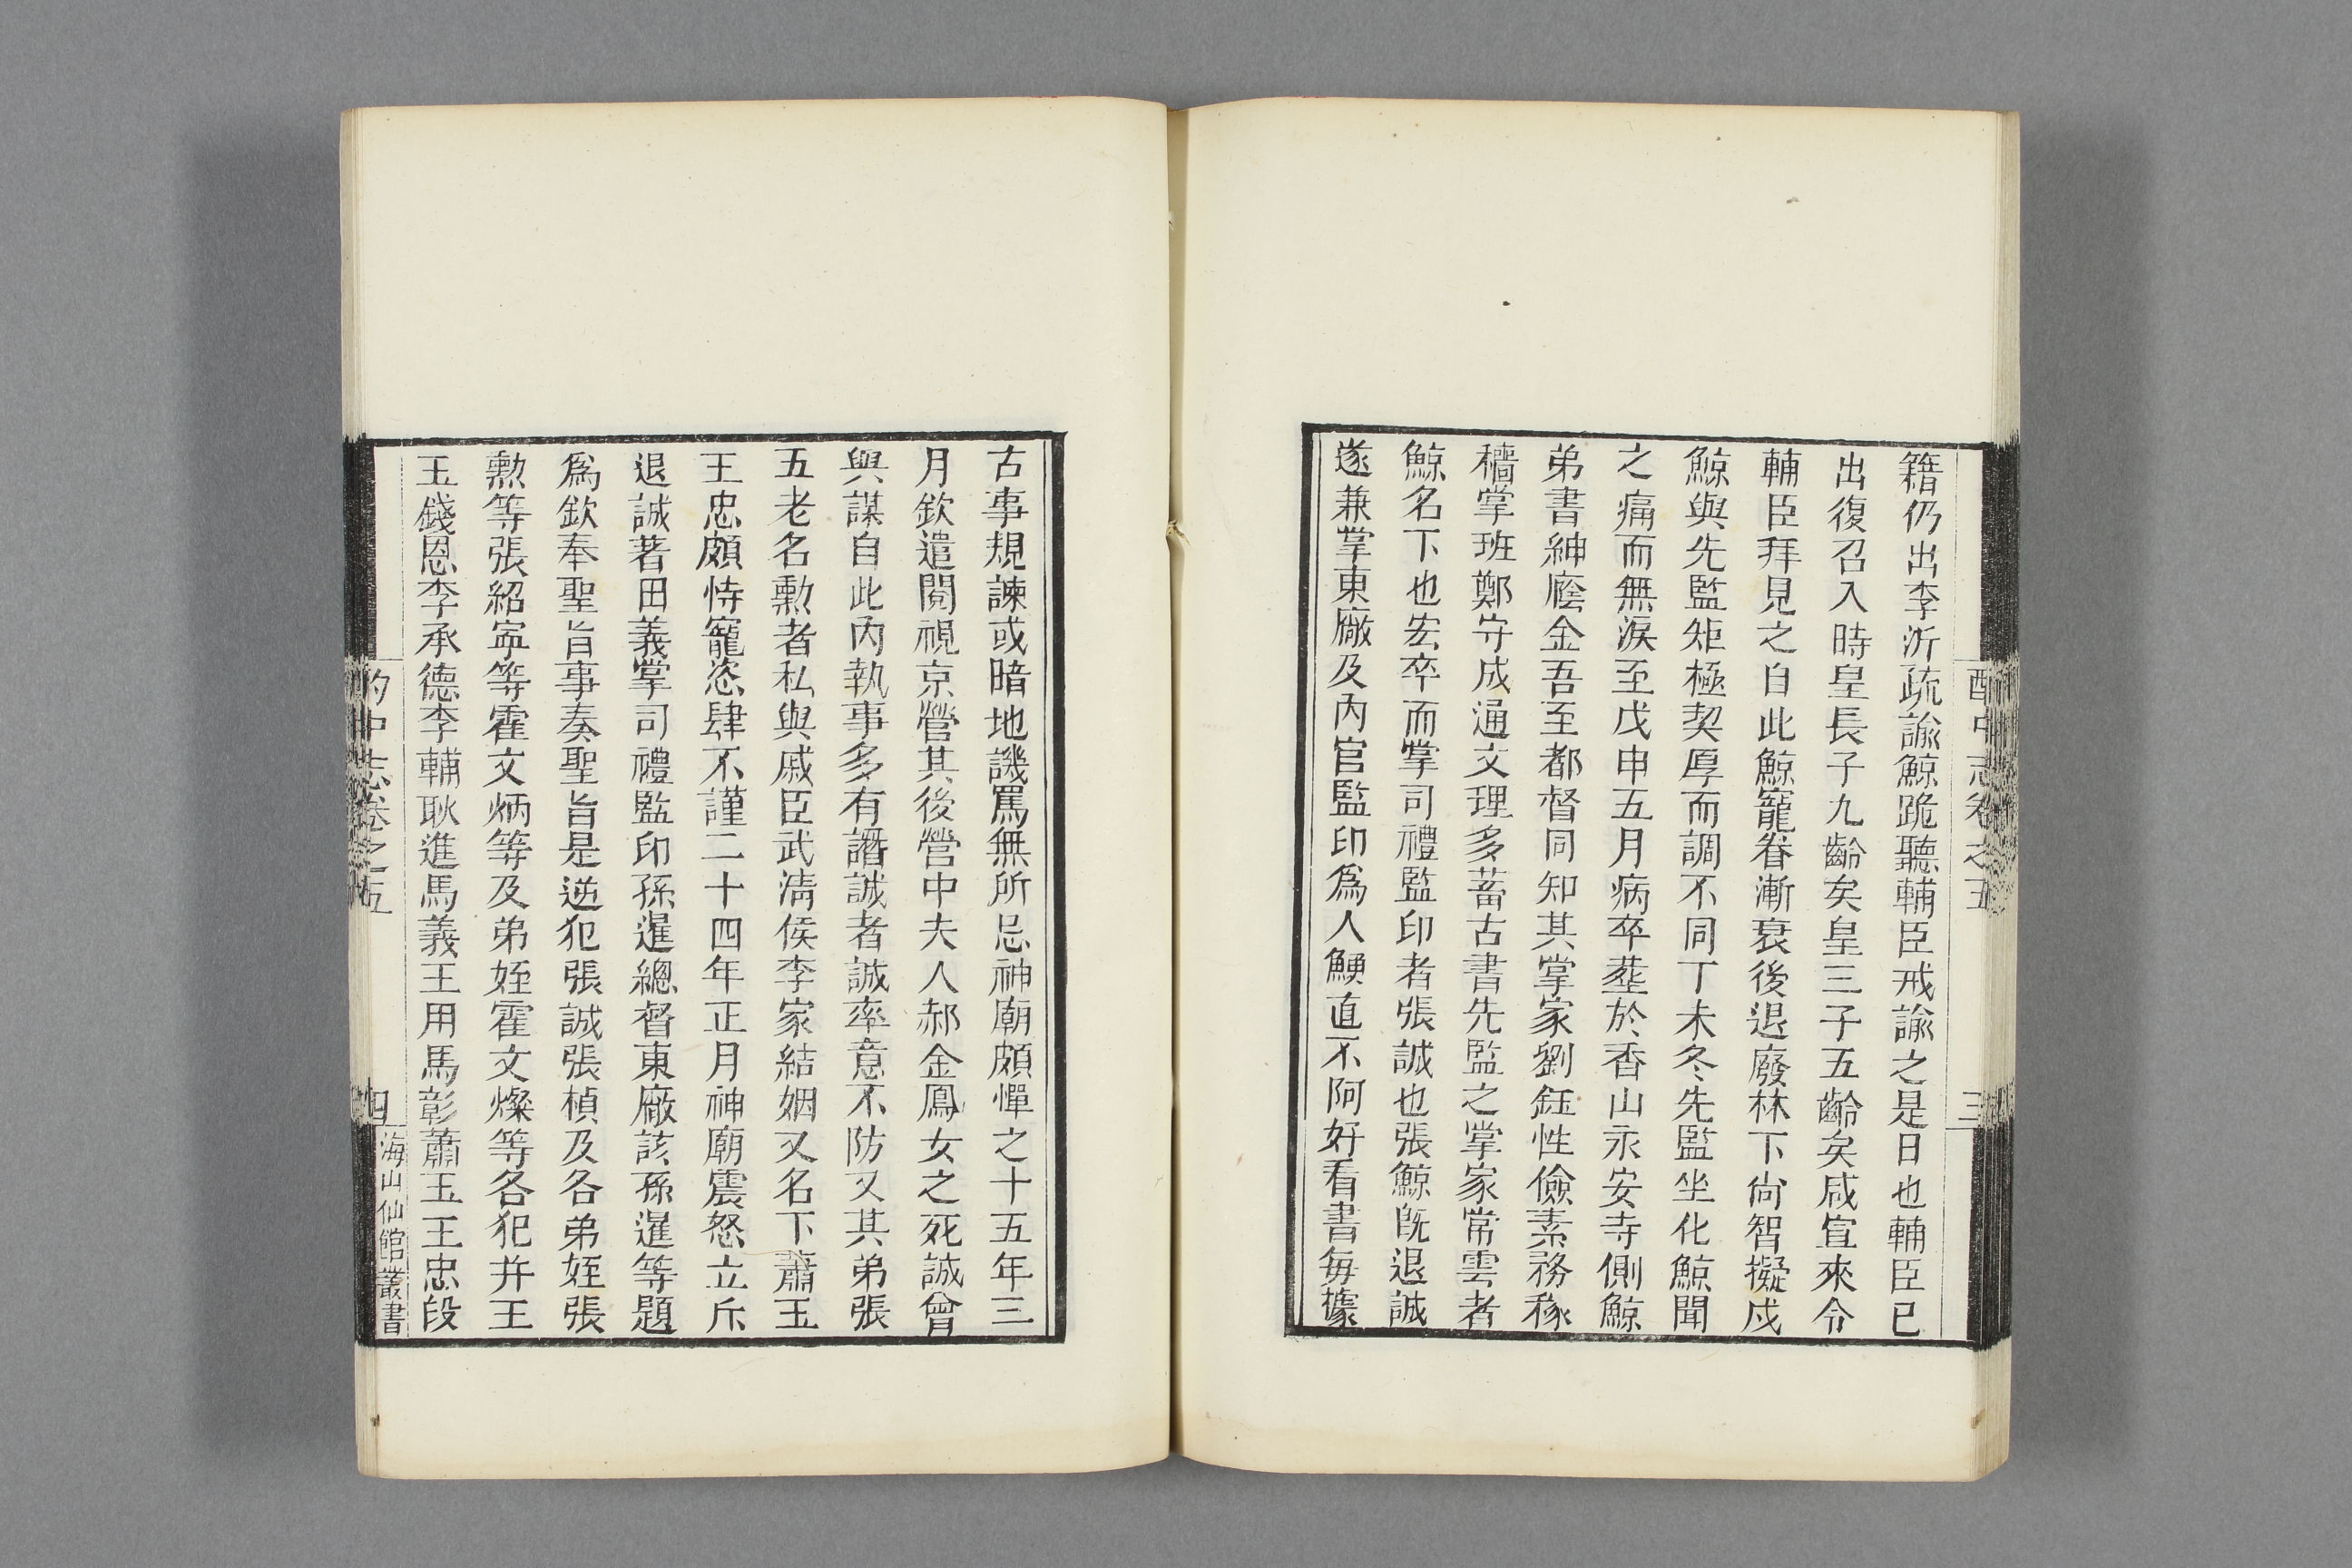 酌中志卷之五
三
籍仍出李沂疏諭鯨跪聽輔臣戒諭之是日也輔臣已
出復召入時皇長子九齡矣皇三子五齡矣咸宣來令
輔臣拜見之自此鯨寵眷漸衰後退廢林下尚智擬戍
鯨與先監矩極契厚而調不同丁未冬先監坐化鯨聞
之痛而無淚至戊申五月病卒塟於香山永安寺側鯨
弟書紳廕金吾至都督同知其掌家劉鈺性儉素務稼
穡掌班鄭守成通文理多蓄古書先監之掌家常雲者
鯨名下也宏卒而掌司禮監印者張誠也張鯨旣退誠
遂兼掌東厰及內官監印爲人鯁直不阿好看書每據
古事規諫或暗地譏罵無所忌神廟頗憚之十五年三
月欽遣閱視京營其後營中夫人郝金鳳女之死誠曾
與謀自此內執事多有譖誠者誠率意不防又其弟張
五老名勳者私與戚臣武淸侯李家結姻又名下蕭玉
王忠頗恃寵恣肆不謹二十四年正月神廟震怒立斥
退誠著田義掌司禮監印孫暹總督東厰該孫暹等題
爲欽奉聖旨事奏聖旨是逆犯張誠張楨及各弟姪張
勳等張紹寧等霍文炳等及弟姪霍文燦等各犯幷王
玉錢恩李承德李輔耿進馬義王用馬彰蕭玉王忠段
酌中志卷之五
四
海山仙館叢書